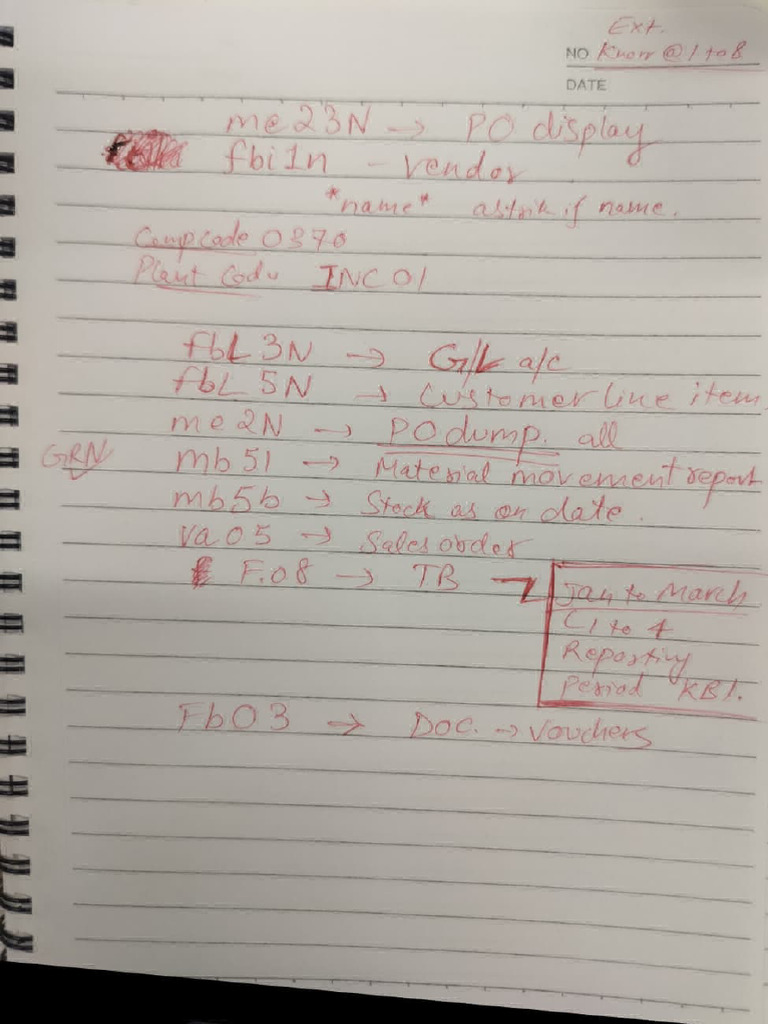 Ext.
NO Knorr @ 1 to 8
DATE
me23N → PO display
fbi1n - vendor
*name* astrik if name.
Comp code 0370
Plant Code INC01
fbL 3N → G/L a/c
fbL 5N → Customer line item
me2N → PO dump. all
GRN mb51 → Material movement report
mb5b → Stock as on date.
va05 → Sales order
F.08 → TB → Jan to March
C1 to 4
Reporting
Period KB1.
Fb03 → DOC. → Vouchers